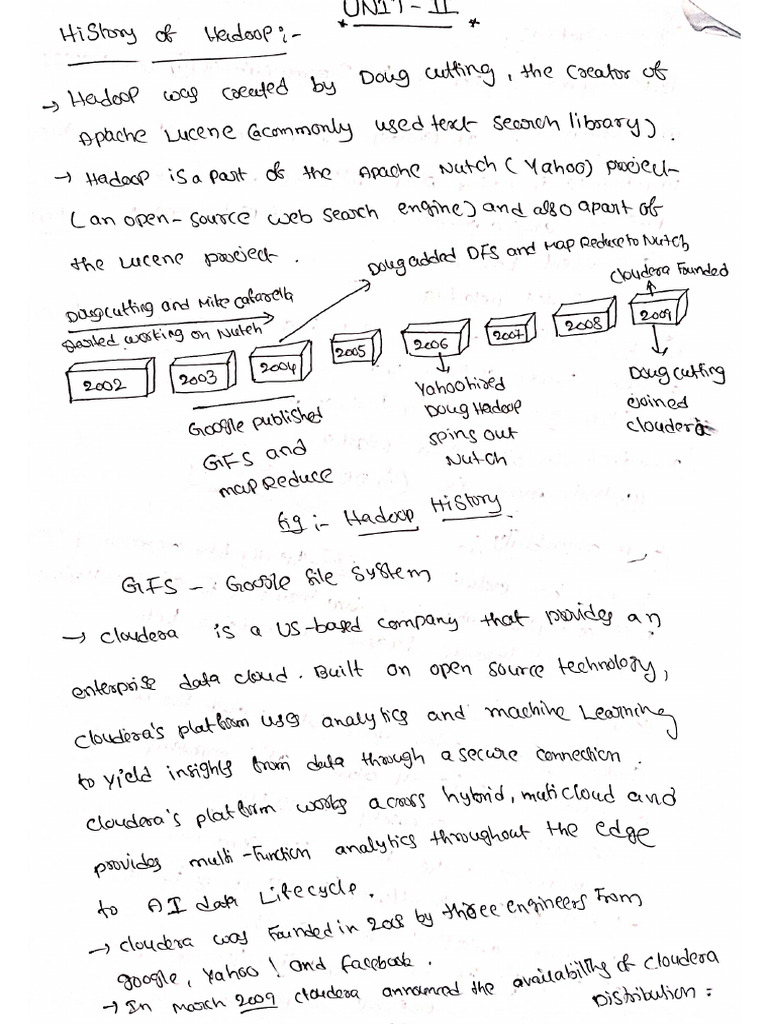 UNIT-II
History of Hadoop:-
→ Hadoop was created by Doug cutting, the creator of
Apache Lucene (acommonly used text search library).
→ Hadoop is a part of the Apache Nutch (Yahoo) project
(an open-source web search engine) and also a part of
the Lucene project.
Doug added DFS and Map Reduce to Nutch
Cloudera Founded
Doug cutting and Mike Cafarella
started working on Nutch
2002 2003 2004 2005 2006 2007 2008 2009
Google published
GFS and
map Reduce
Yahoo hired
Doug Hadoop
spins out
Nutch
Doug cutting
joined
cloudera
fig:- Hadoop History
GFS - Google file system
→ cloudera is a US-based company that provides an
enterprise data cloud. Built on open source technology,
cloudera's platform uses analytics and machine Learning
to yield insights from data through a secure connection.
cloudera's platform works across hybrid, muticloud and
provides multi-function analytics throughout the edge
to AI data Lifecycle.
→ cloudera was Founded in 2008 by three engineers From
google, Yahoo! and facebook.
→ In march 2009 cloudera announced the availability of cloudera
Distribution: